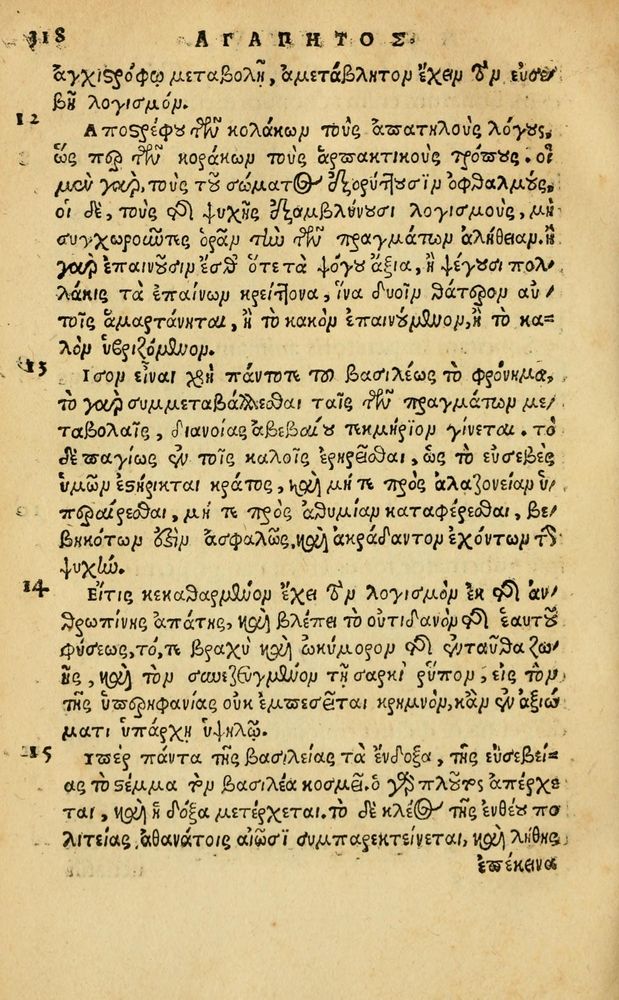 318 ΑΓΑΠΗΤΟΣ.
ἀγχιστρόφῳ μεταβολῇ, ἀμετάβλητον ἔχειν τὸν εὐσε/
βῆ λογισμόν.
12 Αποστρέφου τῶν κολάκων τοὺς ἀπατηλοὺς λόγους,
ὥς περ τῶν κοράκων τοὺς ἁρπακτικοὺς τρόπους. οἱ
μὲν γὰρ, τοὺς τοῦ σώματος ἐξορύττουσιν ὀφθαλμούς,
οἱ δὲ, τοὺς τῆς ψυχῆς ἐξαμβλύνουσι λογισμοὺς, μὴ
συγχωροῦντες ὁρᾶν τὴν τῶν πραγμάτων ἀλήθειαν. ἢ
γὰρ ἐπαινοῦσιν ἔσθ' ὅτε τὰ ψόγου ἄξια, ἢ ψέγουσι πολ/
λάκις τὰ ἐπαίνων κρείττονα, ἵνα δυοῖν θάτερον αὐ/
τοῖς ἁμαρτάνηται, ἢ τὸ κακὸν ἐπαινούμενον, ἢ τὸ κα=
λὸν ὑβριζόμενον.
13 Ισον εἶναι χρὴ πάντοτε τοῦ βασιλέως τὸ φρόνημα,
τὸ γὰρ συμμεταβάλλεσθαι ταῖς τῶν πραγμάτων με/
ταβολαῖς, διανοίας ἀβεβαίου τεκμήριον γίνεται. τὸ
δὲ παγίως ἐν τοῖς καλοῖς ἐρηρεῖσθαι, ὡς τὸ εὐσεβὲς
ὑμῶν ἐστήρικται κράτος, καὶ μή τε πρὸς ἀλαζονείαν ὑ/
περαίρεσθαι, μή τε πρὸς ἀθυμίαν καταφέρεσθαι, βε/
βηκότων ἐστὶν ἀσφαλῶς, καὶ ἀκράδαντον ἐχόντων τὴν
ψυχὴν.
14 Εἴτις κεκαθαρμένον ἔχει τὸν λογισμὸν ἐκ τῆς ἀν/
θρωπίνης ἀπάτης, καὶ βλέπει τὸ οὐτιδανὸν τῆς ἑαυτοῦ
φύσεως, τό, τε βραχὺ καὶ ὠκύμορον τῆς ἐνταῦθα ζω/
ῆς, καὶ τὸν συνεζευγμένον τῇ σαρκὶ ῥύπον, εἰς τὸν
τῆς ὑπερηφανίας οὐκ ἐμπεσεῖται κρημνὸν, κἂν ἐν ἀξιώ
ματι ὑπάρχῃ ὑψηλῷ.
15 Υπὲρ πάντα τῆς βασιλείας τὰ ἔνδοξα, τῆς εὐσεβεί=
ας τὸ στέμμα τὸν βασιλέα κοσμεῖ. ὁ γὰρ πλοῦτος ἀπέρχε
ται, καὶ ἡ δόξα μετέρχεται. τὸ δὲ κλέος τῆς ἐνθέου πο
λιτείας, ἀθανάτοις αἰῶσι συμπαρεκτείνεται, καὶ λήθης
ἐπέκεινα